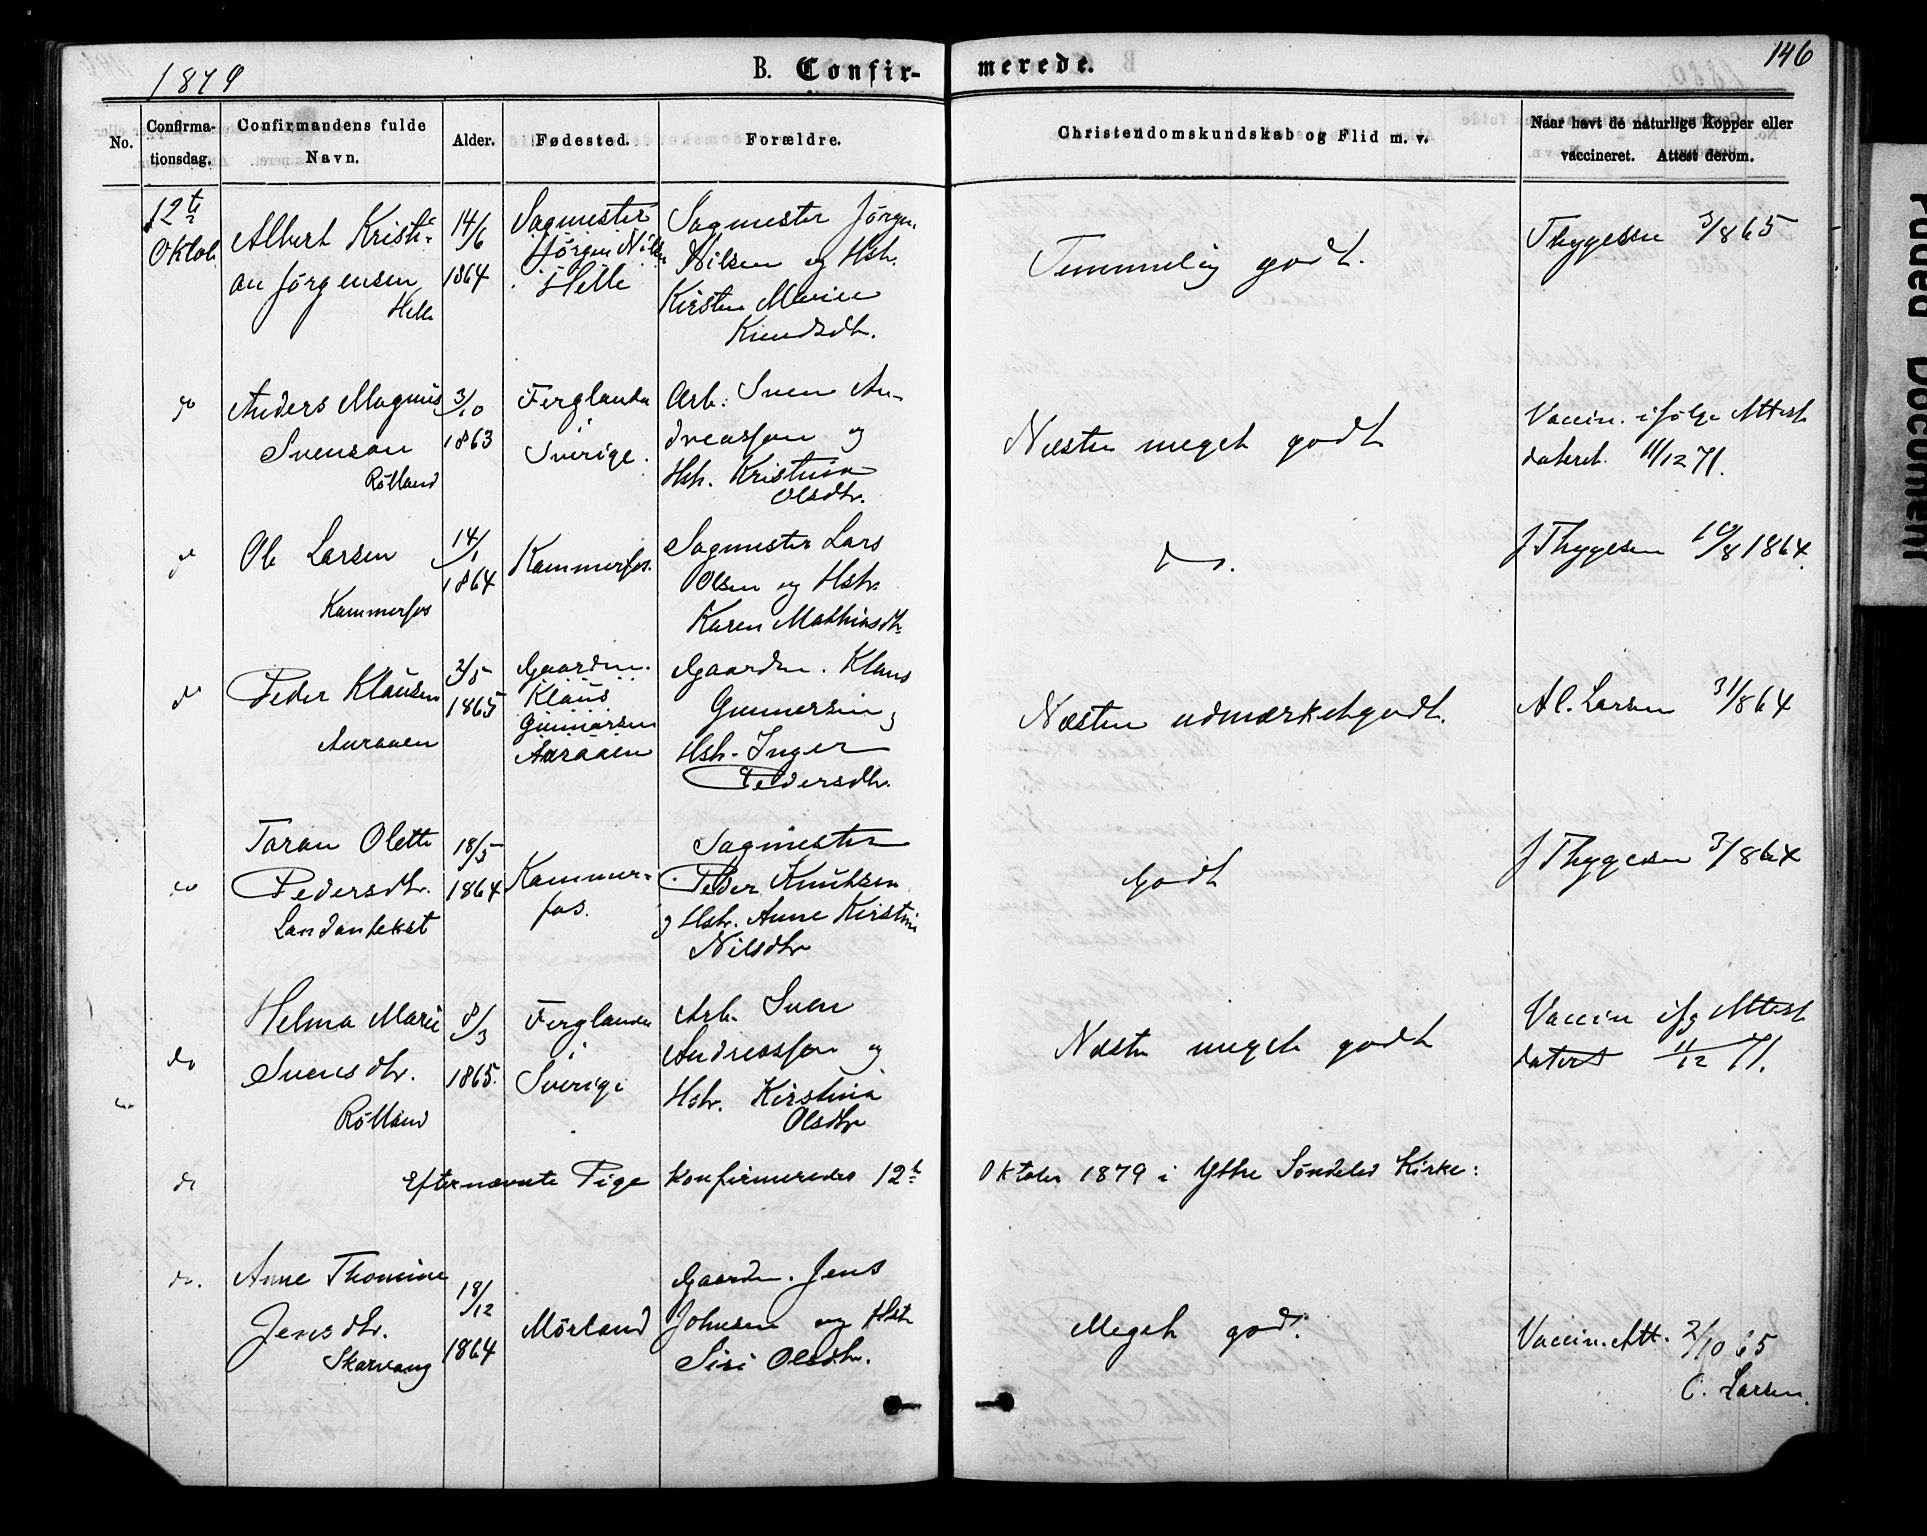 1879
B. Confir-
merede.
146
No.
Confirma-
tionsdag.
Confirmandens fulde
Navn.
Alder.
Fødested.
Forældre.
Christendomskundskab og Flid m. v.
Naar havt de naturlige Kopper eller
vaccineret. Attest derom.
12te
Oktob.
Albert Kristi-
an Jørgensen
Helle
14/6
1864
Sagmester
Jørgen Nilsen
Helle
Sagmester Jørgen
Nilsen og Hstr.
Kirsten Marie
Knudsdtr.
Temmelig godt.
Thygesen 3/8 65
do
Anders Magnus
Svenson
Rølland
3/10
1863
Ferglanda
i
Sverige.
Arb. Sven An-
dreasson og
Hstr. Kristina
Olsdtr.
Næsten meget godt
Vaccin. ifølge Attest
dateret 11/12 71.
do
Ole Larsen
Kammerfos
14/1
1864
Kammerfos.
Sagmester Lars
Olsen og Hstr.
Karen Mathiasdtr.
do.
J Thygesen 10/8 1864.
do
Peder Klausen
Aaraaen
2/5
1865
Gaardm.
Klaus
Gunnarsen
Aaraaen
Gaardm. Klaus
Gunnersen og
Hstr. Inger
Pedersdtr.
Næsten udmærketgodt.
A C. Larsen 31/8 64
do
Taran Olette
Pedersdtr.
18/5
1864
Kammer-
fos.
Sagmester
Peder Knutsen
og Hstr. Anne Kirstine
Nilsdtr
Godt
J Thygesen 3/8 64
do
Helma Marie
Svensdtr.
Rølland
8/3
1865.
Ferglanda
i
Sverige
Arb. Sven
Andreasson og
Hstr. Kirstina
Olsdtr
Næsten meget godt
Vaccin ifg Attest
datert 11/12 71.
do
Efternævnte Pige konfirmeredes 12te Oktober 1879 i Ytre Søndeled Kirke:
do.
Anne Thomine
Jensdtr.
Skarvang
18/12
1864
Mörland
Gaardm. Jens
Johnsen og Hstr
Siri Olsdtr.
Meget godt.
Vaccin. Att. 2/10 65
C. Larsen.
Faded Document